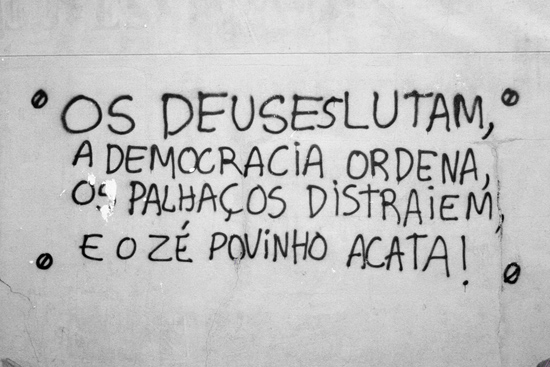 OS DEUSES LUTAM,
A DEMOCRACiA ORDENA,
OS PALHAÇOS DiSTRAiEM,
E O ZÉ POViNHO ACATA!